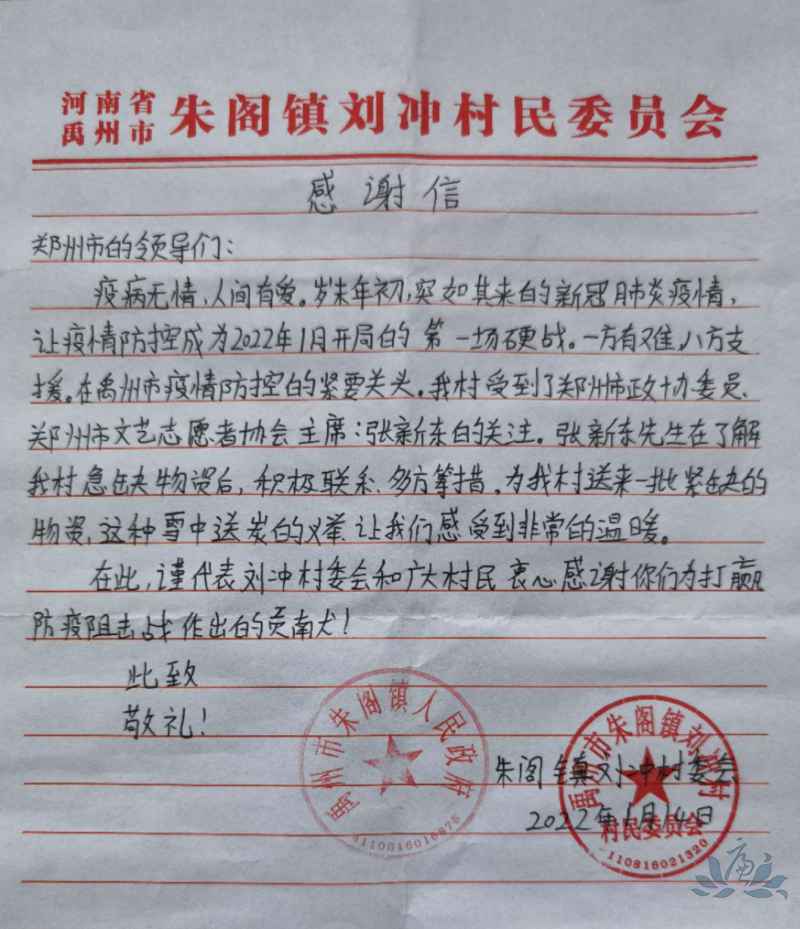 河南省
禹州市
朱阁镇刘冲村民委员会
感谢信
郑州市的领导们：
疫病无情，人间有爱。岁末年初，突如其来的新冠肺炎疫情，
让疫情防控成为2022年1月开局的第一场硬战。一方有难，八方支
援。在禹州市疫情防控的紧要关头。我村受到了郑州市政协委员、
郑州市文艺志愿者协会主席：张新东的关注。张新东先生在了解
我村急缺物资后，积极联系、多方筹措，为我村送来一批紧缺的
物资，这种雪中送炭的义举，让我们感受到非常的温暖。
在此，谨代表刘冲村委会和广大村民衷心感谢你们为打赢
防疫阻击战作出的贡献！
此致
敬礼！
禹州市朱阁镇人民政府
朱阁镇刘冲村委会
2022年1月14日
禹州市朱阁镇刘冲村
村民委员会
110816021320